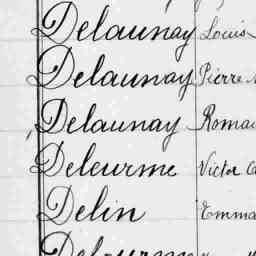 Delaunay Louis
Delaunay Pierre
Delaunay Romai
Deleurme Victor
Delin Emma